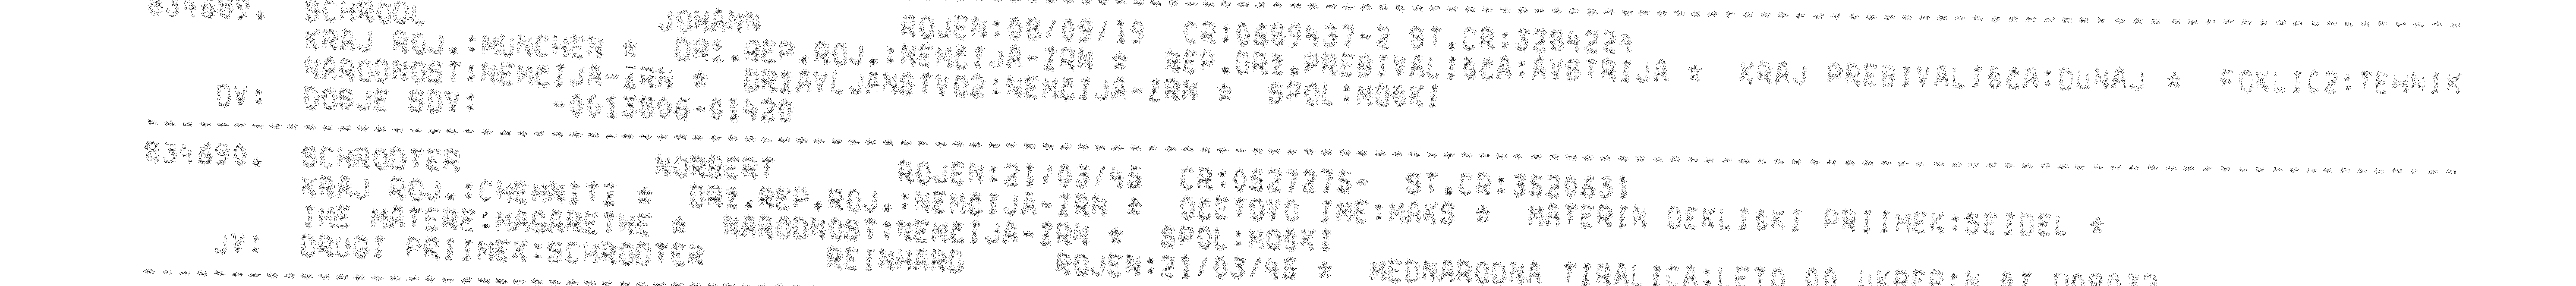 834689. SCHROOL JOHANN ROJEN:08/09/19 CR:0689437-2 ST.CR:3284224
KRAJ ROJ.:MUNCHEN * DRZ.REP.ROJ.:NEMCIJA-ZRN * REP.DRZ.PREBIVALISCA:AVSTRIJA * KRAJ PREBIVALISCA:DUNAJ * POKLIC2:TEHNIK
NARODNOST:NEMCIJA-ZRN * DRZAVLJANSTVO2:NEMCIJA-ZRN * SPOL:MOSKI
DV: DOSJE SDV: -0013806-01420
834690. SCHRODTER NORBERT ROJEN:21/03/45 CR:0527275- ST.CR:3520631
KRAJ ROJ.:CHEMNITZ * DRZ.REP.ROJ.:NEMCIJA-ZRN * OCETOVO IME:MAKS * MATERIN DEKLISKI PRIIMEK:SEIDEL *
IME MATERE:MAGARETHE * NARODNOST:NEMCIJA-ZRN * SPOL:MOSKI
JV: DRUGI PRIIMEK:SCHRODTER REINHARD ROJEN:21/03/45 * MEDNARODNA TIRALICA:LETO